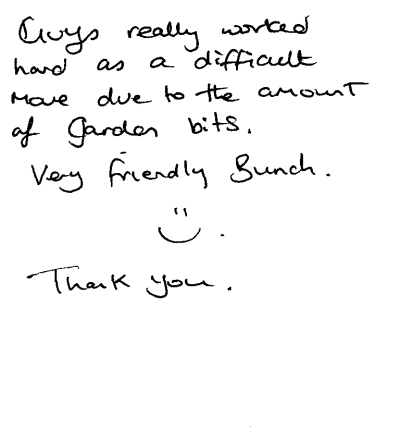 Guys really worked
hard as a difficult
move due to the amount
of garden bits.
Very friendly Bunch.
Thank you.